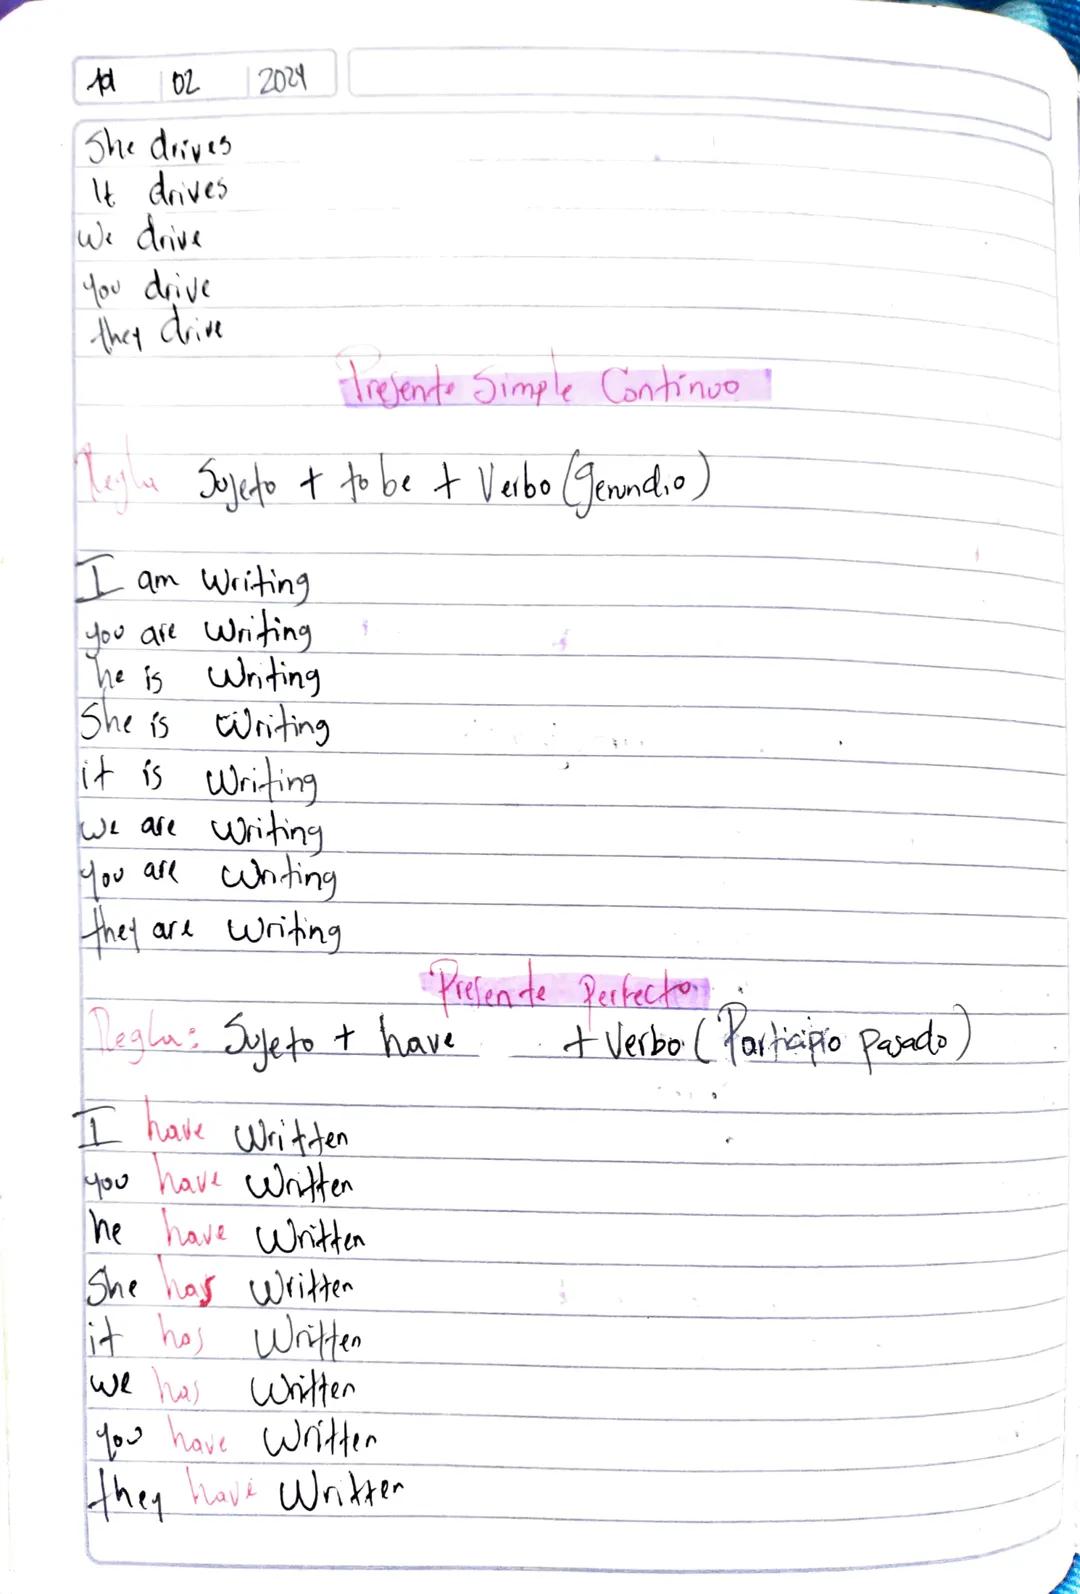 02 2024
She drives
It drives
We drive
you drive
they drive
Presente Simple Continuo
Regla Sujeto + to be + Verbo (gerundio)
I am writing
you are writing
he is writing
She is writing
it is writing
we are writing
you are writing
they are writing
Presente Perfecto
Regla: Sujeto + have + Verbo (Participio pasado)
I have written
you have written
he have written
She has written
it has written
we has written
you have written
they have written